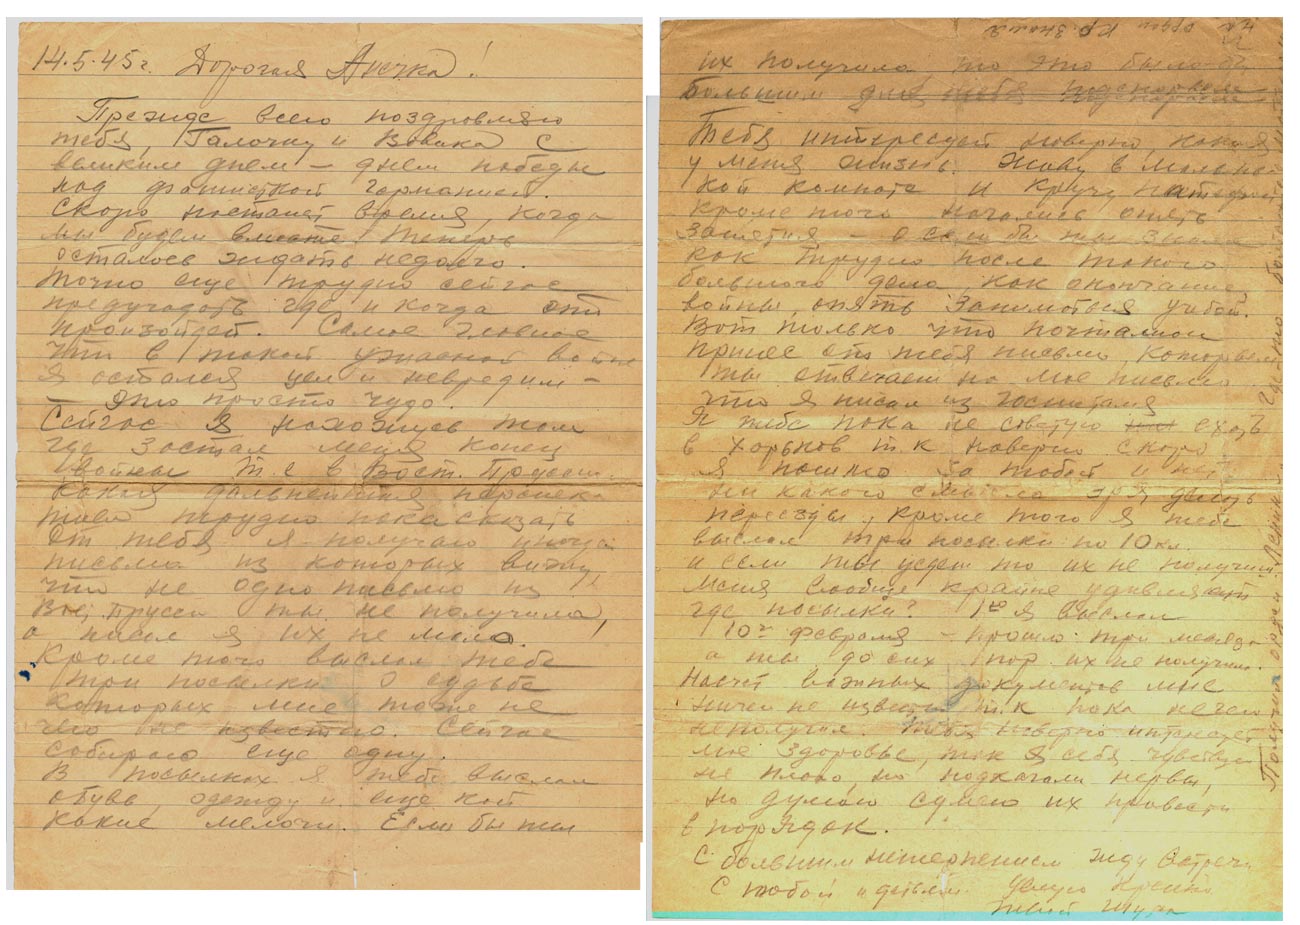 14.5.45 г. Дорогая Анечка!
Прежде всего поздравляю
тебя, Галочку и Вовика с
великим днем – днем победы
над фашисткой германией.
Скоро настанет время, когда
мы будем вместе. Теперь
осталось ждать недолго.
Точно еще трудно сейчас
предугадать где и когда это
произойдет. Самое главное
что в такой ужасной войне
я остался цел и невредим –
– это просто чудо.
Сейчас я нахожусь там
где застал меня конец
войны т.е в Вост. Пруссии.
Какая дальнейшая перспек
тива трудно пока сказать
От тебя я получаю иногда
письма из которых вижу,
что не одно письмо из
Вос. Прусси ты не получила,
а писал я их не мало.
Кроме того выслал тебе
три посылки о судьбе
которых мне тоже не
чего не известно. Сейчас
собираю еще одну.
В посылках я тебе выслал
обувь, одежду и еще кой
какие мелочи. Если бы ты
их получила то это было бы
большим для тебя
Тебя интересует наверно, какая
у меня жизнь. Живу в малень
кой комнате и кручу патефон
кроме того начались опять
занятия – о если бы ты знала
как трудно после такого
большого дела, как окончание
войны, опять заниматься учебой.
Вот только что почтальон
принес от тебя письмо, которым
ты отвечаешь на мое письмо
что я писал из госпиталя
Я тебе пока не советую ехать
в Харьков т.к наверно скоро
я пошлю за тобой и нет
ни какого смысла зря делать
переезды, кроме того я тебе
выслал три посылки по 10 кл.
и если ты уедеш то их не получиш.
Меня вообще крайне удивляет
где посылки? 1ю я выслал
10го февраля – прошло три месяца
а ты до сих пор их не получила.
Насчет важных документов мне
ничего не известно т.к пока нечего
неполучил. Тебя наверно интересует
мое здоровье, так я себя чувствую
не плохо, но подкачали нервы,
но думаю сумею их привести
в порядок.
С большим нетерпением жду встречи
с тобой и детьми. Целую крепко
твой Шура
Получил орден Ленина
орден Кр. Знамя